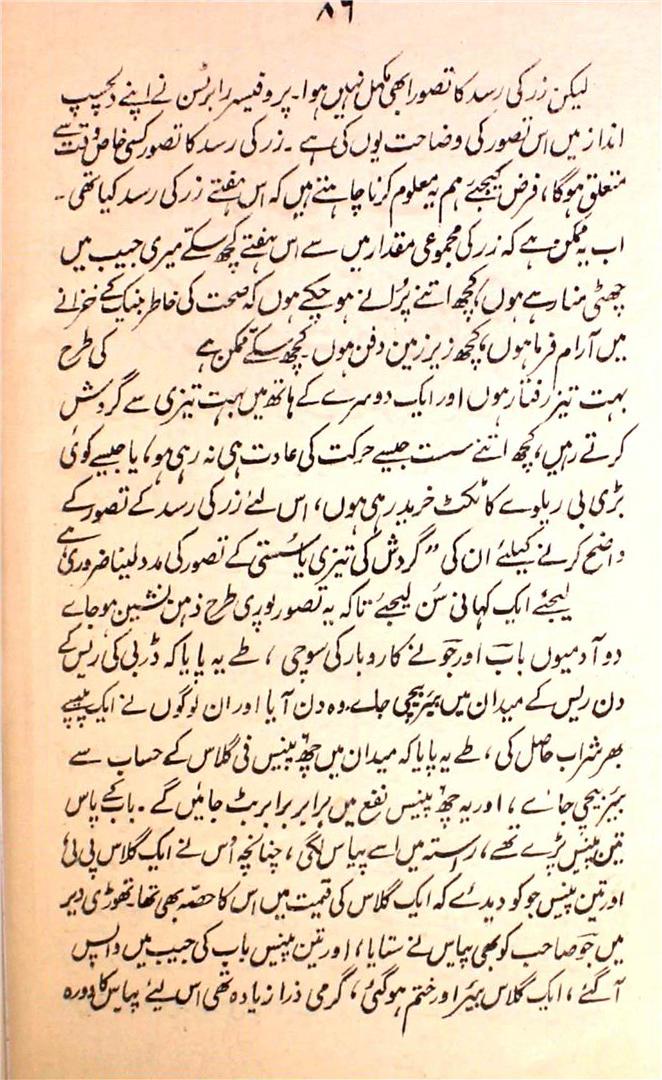 ۸۶
لیکن زر کی رسد کا تصور ابھی مکمل نہیں ہوا۔ پروفیسر رابرٹسن نے اپنے دلچسپ
انداز میں اس تصور کی وضاحت یوں کی ہے ۔ زر کی رسد کا تصور کسی خاص وقت سے
متعلق ہوگا، فرض کیجئے ہم یہ معلوم کرنا چاہتے ہیں کہ اس ہفتے زر کی رسد کیا تھی ۔
اب یہ ممکن ہے کہ زر کی مجموعی مقدار میں سے اس ہفتے کچھ سکے میری جیب میں
چھٹی منا رہے ہوں، کچھ اتنے پرانے ہو چکے ہوں کہ صحت کی خاطر بنک کے خزانے
میں آرام فرما ہوں، کچھ زیر زمین دفن ہوں ۔ کچھ سکّے ممکن ہے کی طرح
بہت تیز رفتار ہوں اور ایک دوسرے کے ہاتھ میں بہت تیزی سے گردش
کرتے رہیں، کچھ اتنے سست جیسے حرکت کی عادت ہی نہ رہی ہو، یا جیسے کوئی
بڑی بی ریلوے کا ٹکٹ خرید رہی ہوں، اس لئے زر کی رسد کے تصور کے
واضح کرنے کیلئے ان کی ”گردش کی تیزی یا سُستی کے تصور کی مدد لینا ضروری ہے
لیجئے ایک کہانی سُن لیجئے تاکہ یہ تصور پوری طرح ذہن نشین ہو جاے
دو آدمیوں باب اور جَو نے کاروبار کی سوچی ، طے یہ پایا کہ ڈربی کی ریس کے
دن ریس کے میدان میں بیئر بیچی جاے۔ وہ دن آیا اور ان لوگوں نے ایک پیپے
بھر شراب حاصل کی ، طے یہ پایا کہ میدان میں چھ پینس فی گلاس کے حساب سے
بیئر بیچی جاے ، اور یہ چھ پینس نفع میں برابر برابر بٹ جائیں گے ۔ باب کے پاس
تین پینس پڑے تھے ، راستہ میں اسے پیاس لگی ، چنانچہ اُس نے ایک گلاس پی لی
اور تین پینس جو کو دیدے کہ ایک گلاس کی قیمت میں اس کا حصّہ بھی تھا۔ تھوڑی دیر
میں جَو صاحب کو بھی پیاس نے ستایا ، اور تین پینس باب کی جیب میں واپس
آ گئے ، ایک گلاس بیئر اور ختم ہو گئی ، گرمی ذرا زیادہ تھی اس لئے پیاس کا دورہ